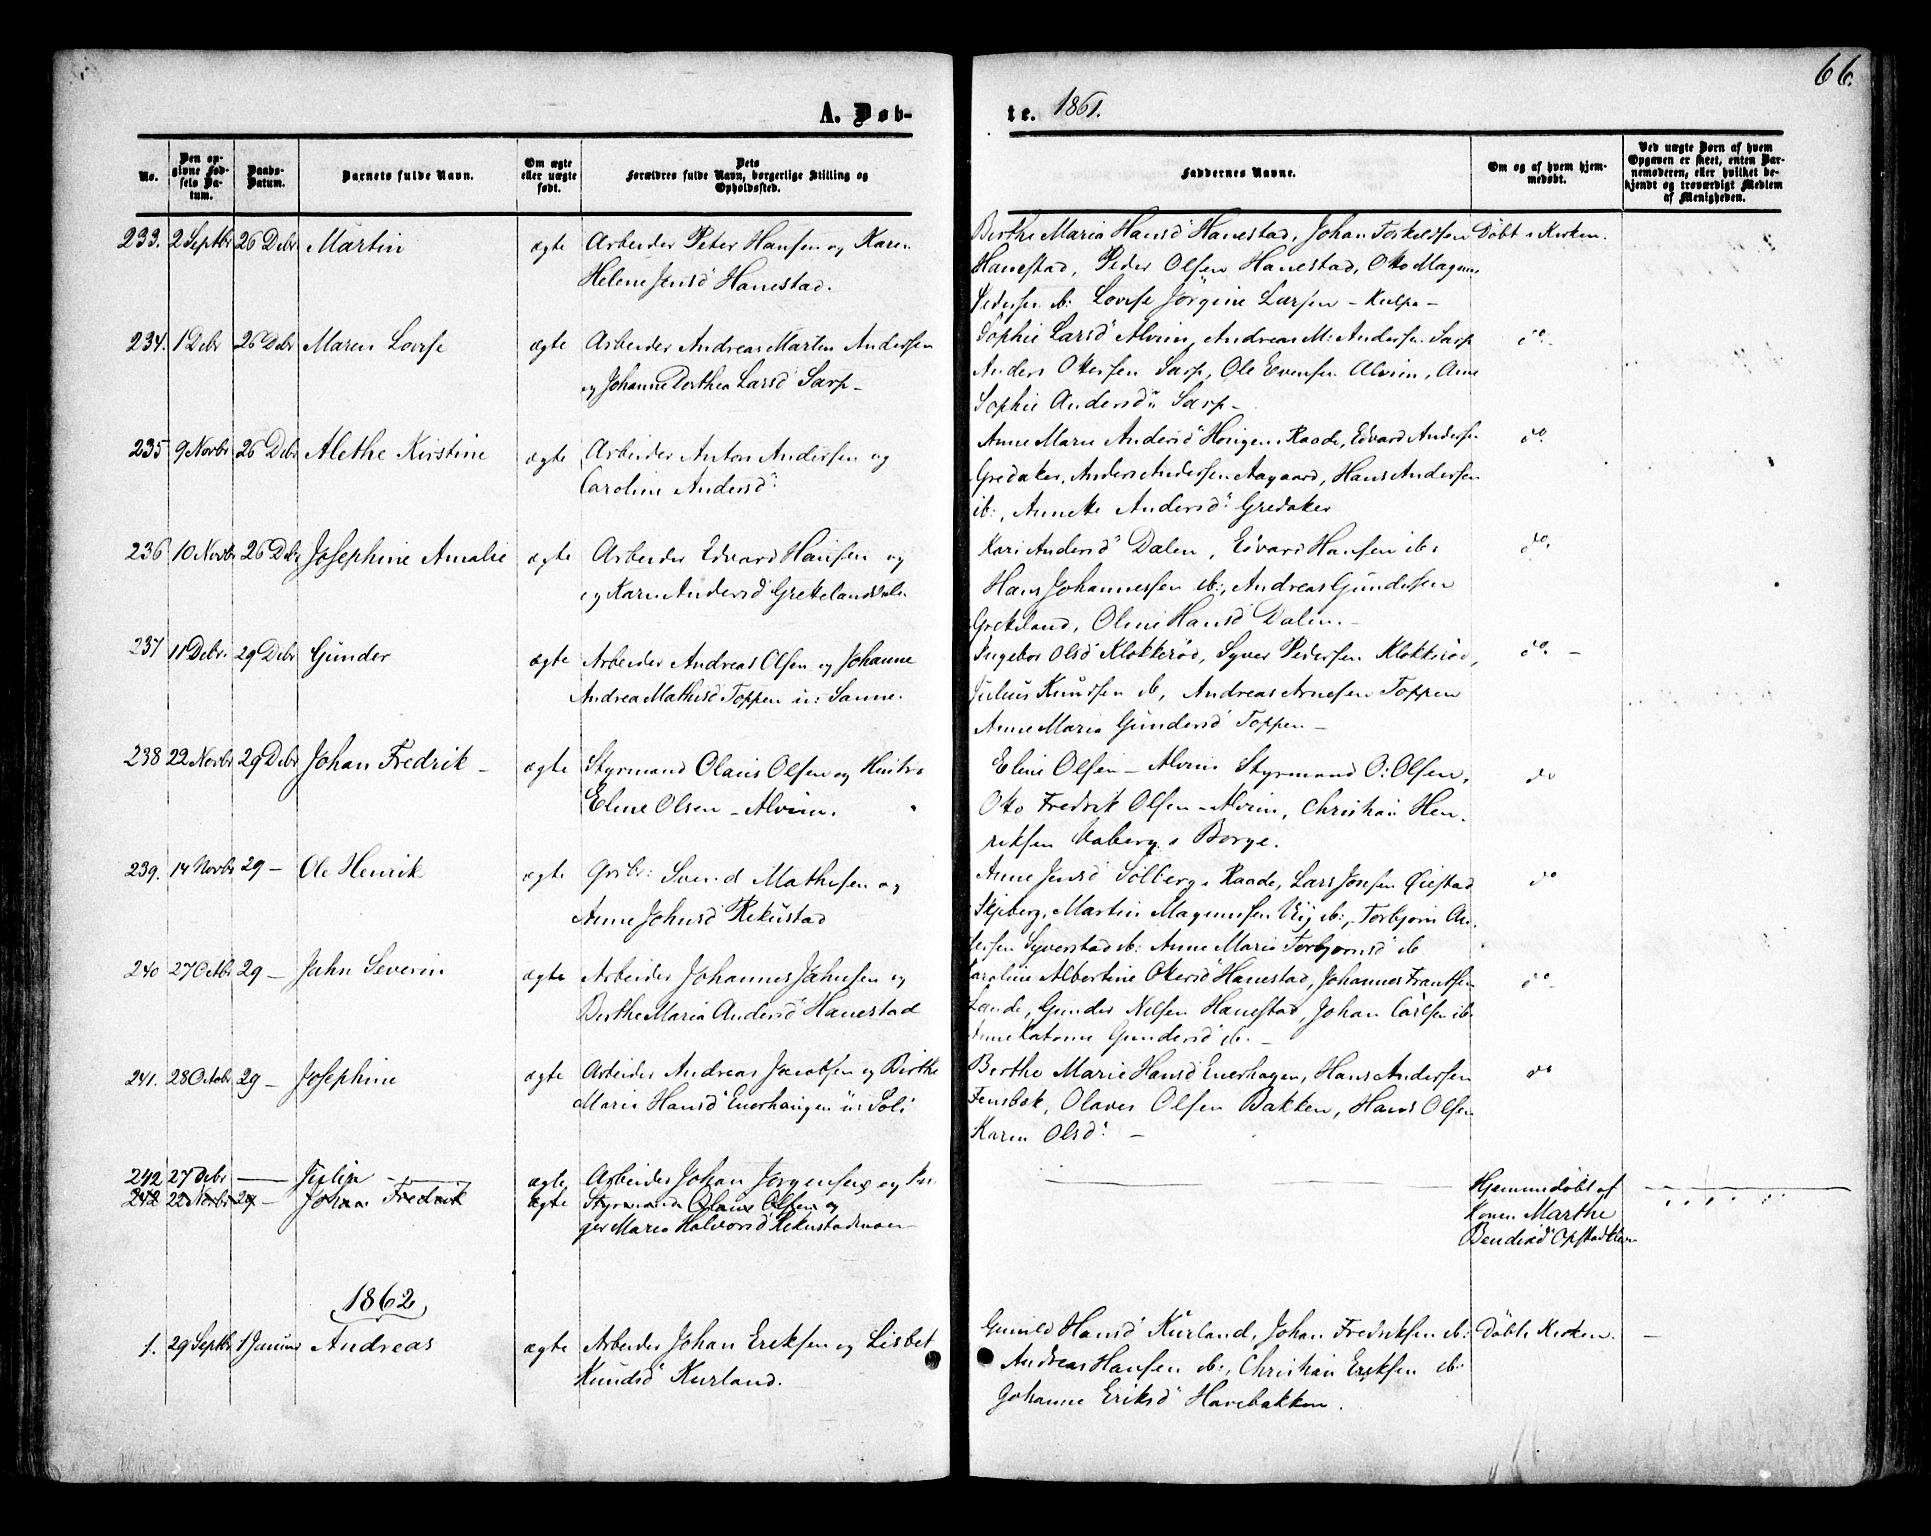 66.
A. Døb-
te. 1861.
No.
Den op-
givne Fød-
sels Da-
tum.
Daabs-
Datum.
Barnets fulde Navn.
Om ægte
eller uægte
født.
Dets
Forældres fulde Navn, borgerlige Stilling og
Opholdssted.
Faddernes Navne.
Om og af hvem hjem-
medøbt.
Ved uægte Børn af hvem
Opgaven er skeet, enten Bar-
nemoderen, eller hvilket be-
kjendt og troværdigt Medlem
af Menigheden.
233. 2 Septbr 26 Debr Martin ægte Arbeider Peter Hansen og Karen
Helene Jensd Hanestad.
Berthe Maria Hansd Hanestad, Johan Torkelsen Døbt i Kirken.
Hanestad, Peder Olsen Hanestad, Otto Magn:
Pedersen ib: Lovise Jörgine Larsen - Kulpe -
234. 1 Debr 26 Debr Maren Lovise ægte Arbeider Andreas Marten Andersen
og Johanne Dorthea Larsd Sarp -
Sophie Larsd Alvim, Andreas M: Andersen Sarp do. -
Anders Olsen Sarp, Ole Evensen Alvim, Anne
Sophie Andersd: Sarp -
235 9 Novbr 26 Debr Alethe Kirstine ægte Arbeider Anton Andersen og
Caroline Andersd:
Anne Marie Andersd Raade, Edvard Andersen do.
Gredaker, Anders Andersen Aagaard, Hans Andersen
ib:, Annette Andersd: Gredaker
236 10 Novbr 26 Debr Josephine Amalie ægte Arbeider Edvard Hansen og
og Karen Andersd Grekelandsdalen
Kari Andersd Dalen, Edvard Hansen ib: do.
Hans Johannessen ib:, Andreas Gundersen
Grekeland, Oline Hansd Dalen. -
237 11 Debr. 29 Debr Gunder ægte Arbeider Andreas Olsen og Johanne
Andrea Mathisd Toppen u: Sanne.
Ingebor Olsd Klokkerød, Syver Pedersen Klokkerød, do. -
Julius Knudsen ib, Andreas Arnesen Toppen
Anne Maria Gundersd Toppen -
238 22 Novbr 29 Debr Johan Fredrik - ægte Styrmand Olaus Olsen og Hustru
Eline Olsen - Alvim.
Eline Olsen - Alvim Styrmand O: Olsen, do
Otto Fredrik Olsen - Alvim, Christian Hen-
riksen i Borge.
239. 14 Novbr 29 - Ole Henrik ægte Grbr: Svend Mathisen og
Anne Johnsd Rekustad
Anne Jensd Solberg i Raade, Lars Jonsen Öiestad do
Skjeberg, Martin Magnussen Viig ib:, Torbjørn An-
dersen Syverstad ib: Anne Maria Torbjørnsd ib
240 27 Octbr 29 - Jahn Severin ægte Arbeider Johannes Jahnsen og
Berthe Maria Andersd Hanestad
Caroline Albertine Olersd Hanestad, Johannes Frantsen do -
Lande, Gunder Nilsen Hanestad, Johan Carlsen ib.
Anne Gundersd ib. -
241. 28 Octobr 29 - Josephine ægte Arbeider Andreas Jacobsen og Birthe
Maria Hansd Enerhaugen u: Soli
Berthe Marie Hansd Enerhagen, Hans Andersen do
Fensbæk, Olaves Olsen Bakken, Hans Olsen
Karen Olsd: -
242 27 Debr - Julie - ægte Arbeider Johan Jørgensen og In-
242 22 Novbr 29 - Johan Fredrik ægte Styrmand Olaus Olsen og
ger Maria Halvorsd Rekustadmoen
Hjemmedøbt af
Konen Marthe
1862
1. 29 Septbr 1 Januar Andreas ægte Arbeider Johan Eriksen og Lisbet
Knudsd Kurland.
Gunild Hansd Kurland, Johan Fredriksen ib: Døbt i Kirken. -
Andreas Hansen ib:, Christian Eriksen ib:
Johanne Eriksd Havebakken.